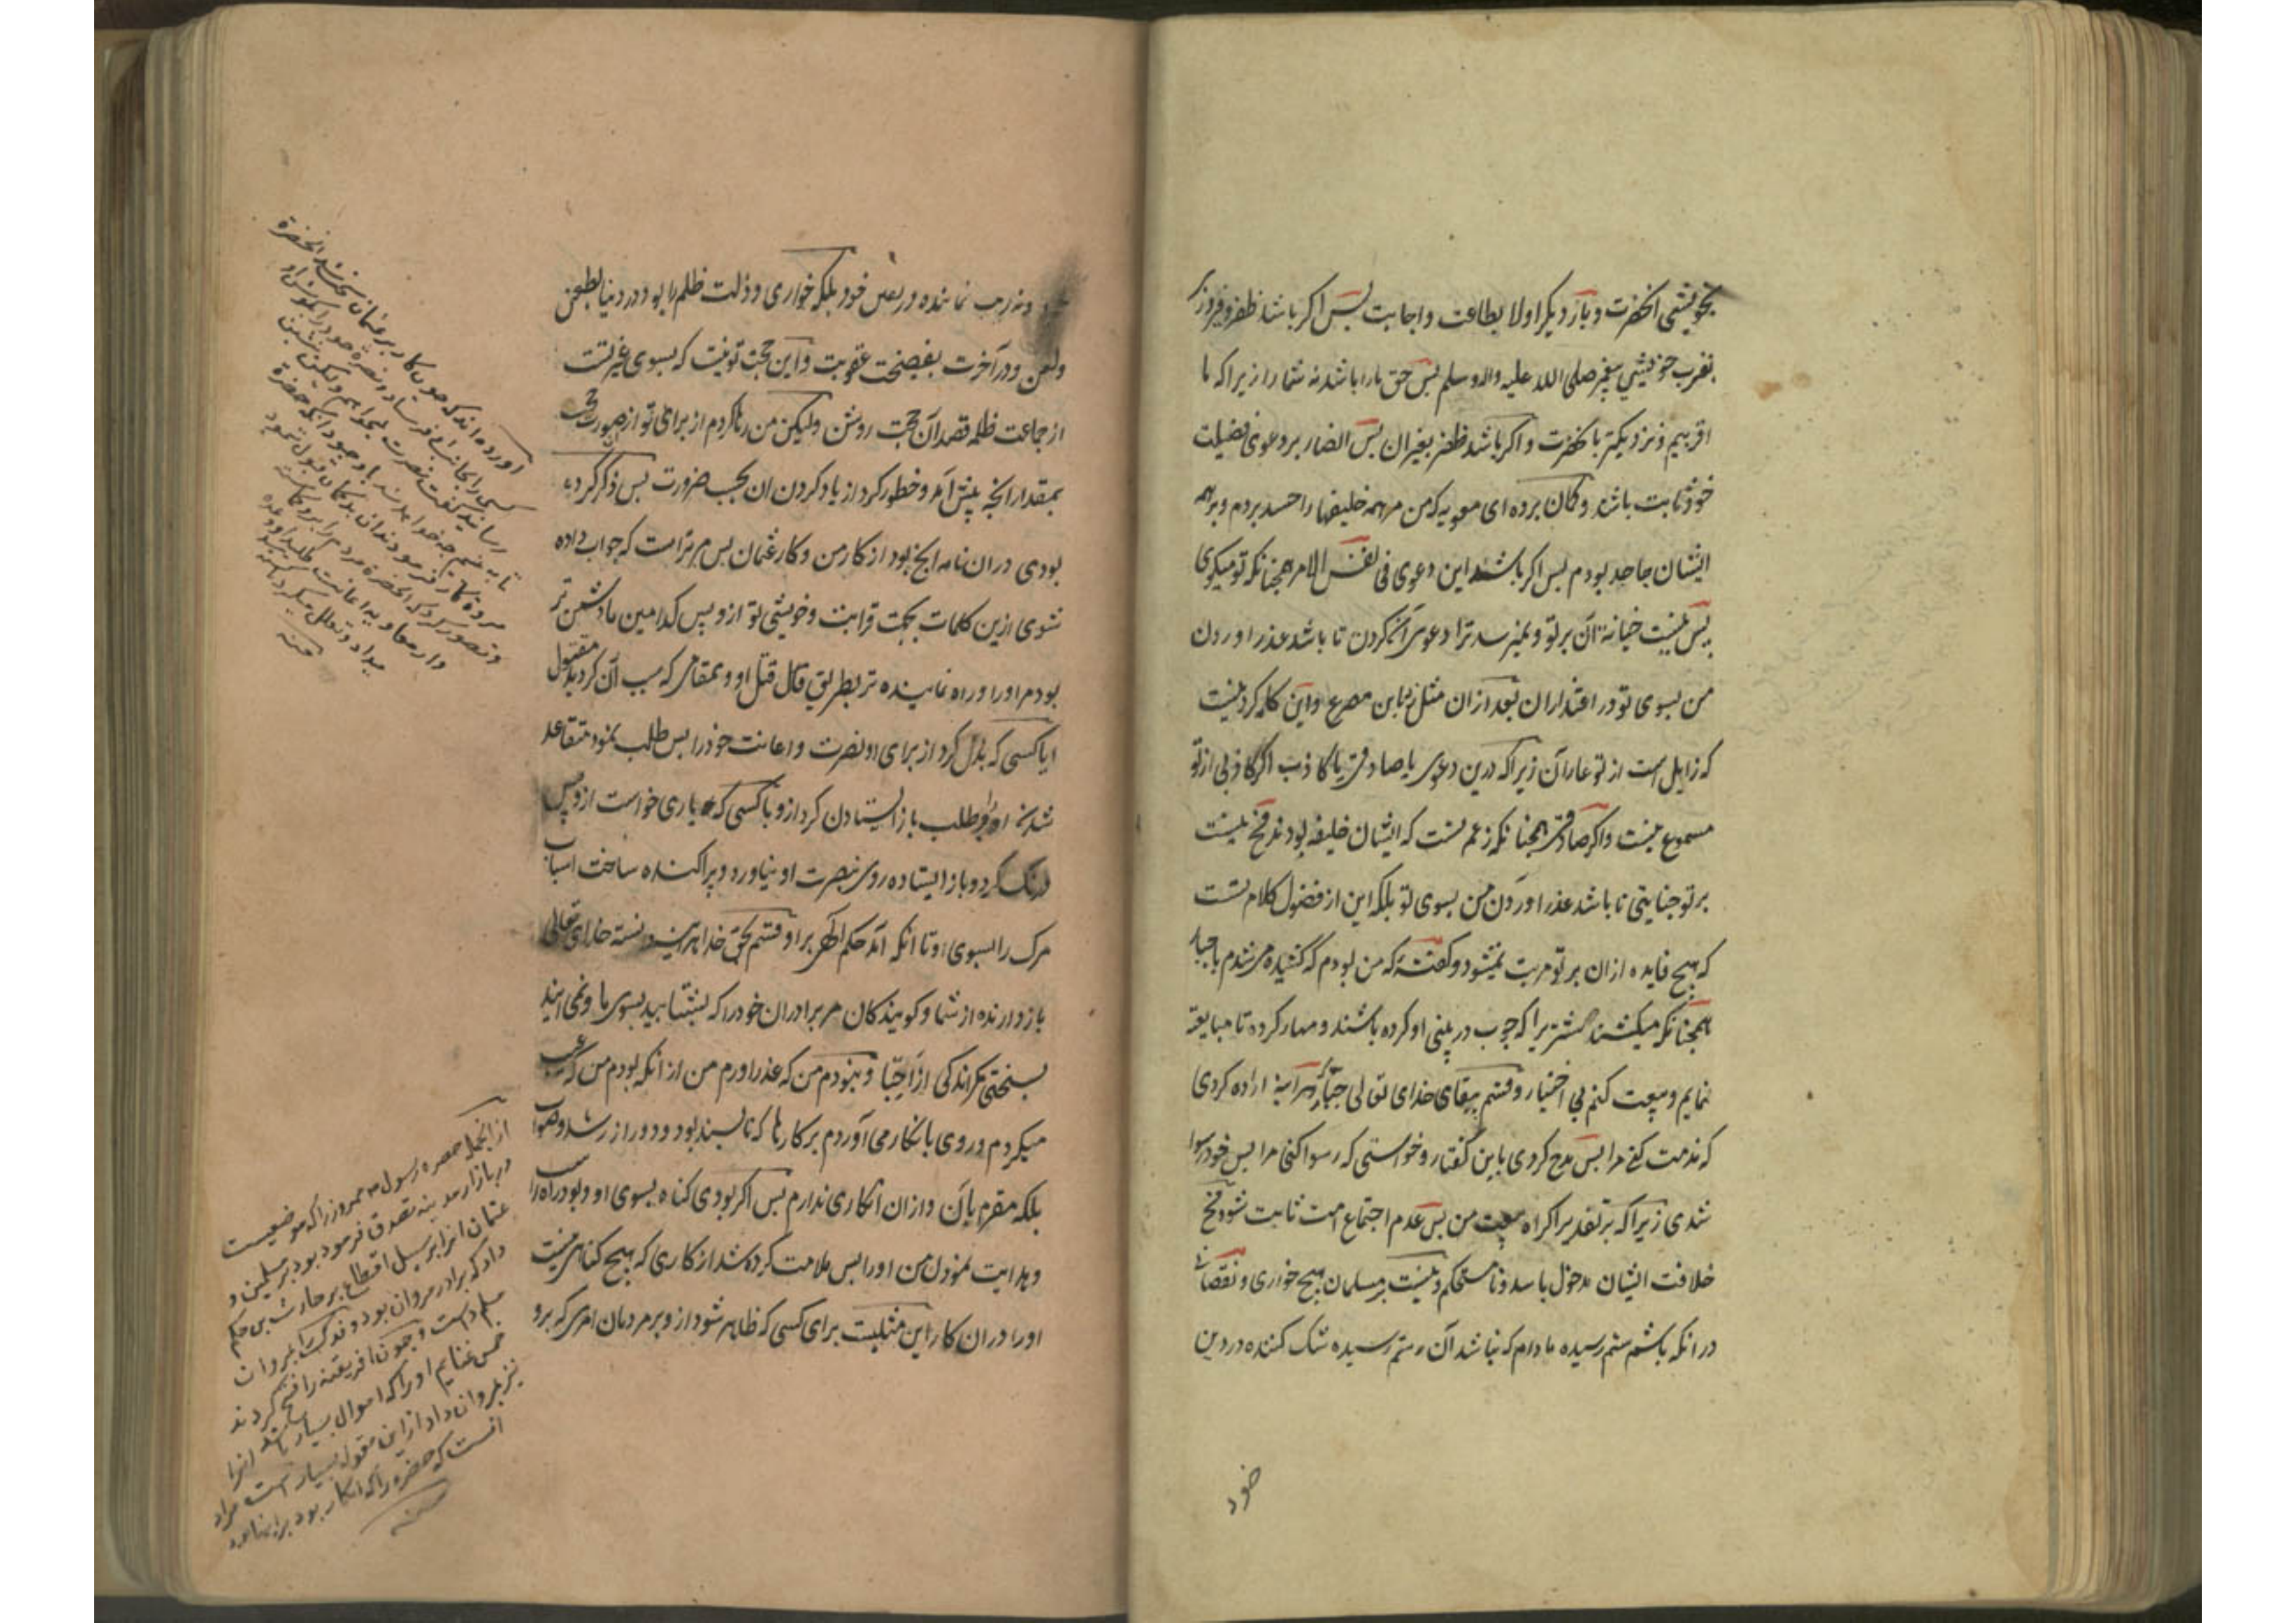 بخویشی انحضرت و بار دیکر اولا بطاعت و اجابت پس اکر باشد ظفر و فیروزی
بقرب خویشی پیغمبر صلی الله علیه واله وسلم پس حق ما را باشد نه شما را زیرا که ما
اقربیم و نزدیکتر بانحضرت و اکر باشد ظفر بغیر ان پس انصار بر دعوی فضیلت
خود ثابت باشند و کمان برده ای معویه که من مر همه خلیفها را حسد بردم و بر همه
ایشان جاحد بودم پس اکر باشد این دعوی فی نفس الامر همچنانکه تو میکوی
پس نیست خیانة آن بر تو و نمیرسد ترا دعوی آن کردن تا باشد عذر اوردن
من بسوی تو در اعتذار ان بعد ازان مثل زد باین مصرع و این کله کردنیست
که زایل است از تو عار آن زیرا که درین دعوی یا صادقی یا کاذب اکر کاذبی از تو
مسموع نیست و اکر صادقی همچنانکه زعم تست که ایشان خلیفه بودند هیچ نیست
بر تو جنایتی تا باشد عذر اوردن من بسوی تو بلکه این از فضول کلام تست
که هیچ فایده ازان بر تو مرتب نمیشود و کفتهٔ که من بودم که کشیده می شدم باجبار
همچنانکه میکشند شتر یرا که چوب در بینی او کرده باشند و مهار کرده تا مبایعة
نمایم و بیعت کنم بی اختیار و قسم ببقای خدای تعالی هر آینه اراده کردی
که مذمت کنی مرا پس مدح کردی باین کفتار و خواستی که رسوا کنی مرا پس خود رسوا
شدی زیرا که بر تقدیر اکراه بیعت من پس عدم اجتماع امت ثابت شود
خلافت ایشان مدخول باشد و نامستحکم و نیست بر مسلمان هیچ خواری و نقصان
در انکه باشد ستم رسیده مادام که نباشد آن ستم رسیده شک کننده در دین
خود
ونه ریب نماینده در یقین خود بلکه خواری و ذلت ظلم را بود در دنیا بطعن
ولعن و در آخرت بفضیحت عقوبت و این حجت تو نیست که بسوی غیر تست
از جماعت ظلمه قصد آن حجت روشن ولیکن من رها کردم از برای تو از صورت حجت
بمقدار انچه پیش آمد و خطور کرد از یاد کردن ان بحسب ضرورت پس ذکر کرده
بودی دران نامه انچه بود از کار من و کار عثمان پس مر تراست که جواب داده
شوی ازین کلمات بجهت قرابت و خویشی تو ازو پس کدامین ما دشمن تر
بودیم او را و راه نماینده تر بطریق قتال قتل او و بمقامی که سبب آن کردید مقتول
ایا کسی که بذل کرد از برای او نصرت و اعانت خود را پس طلب نمود متقاعد
شدن او را و طلب باز ایستادن کرد ازو یا کسی که یاری خواست ازو پس
درنک کرد و باز ایستاده روی بنصرت او نیاورد و پراکنده ساخت اسباب
مرک را بسوی او تا انکه آمد حکم الهی بر او قسم بحق خدا هر آینه دانسته خدای تعالی
باز دارنده از شما و کویندکان مر برادران خود را که بشتابید بسوی ما و نمی ایند
بسختی مکر اندکی از احبا و نبودم من که عذر اورم من از انکه بودم من که عیب
میکردم و روی بانکار می آوردم بر کارها که ناپسند بود و دور از رشد و صواب
بلکه مقرم بآن و ازان انکاری ندارم پس اکر بودی کناه بسوی او و بود راه را
و هدایت نمودن من او را پس ملامت کرده شد از کاری که هیچ کناهی نیست
او را دران کار این مثلیت برای کسی که ظاهر شود ازو بر مردمان امری که برو
آورده اند که چون کار بر عثمان سخت شد انحضرة
کسی را بجانب او فرستاد
از انجمله حضرة رسول مهروز را که موضعیست
در بازار مدینه تصدق فرموده بود بر مسلمین و
عثمان انرا بر سبیل اقطاع بر حارث بن حکم
داد که برادر مروان بود و فدک را بمروان
مسلم داشت و چون افریقیه را فتح کردند
خمس غنایم او را که اموال بسیار باشد انرا
نیز بمروان داد ازین مقوله بسیار است مراد
انست که حضرة را که انکار بود بر اینها بود
منه